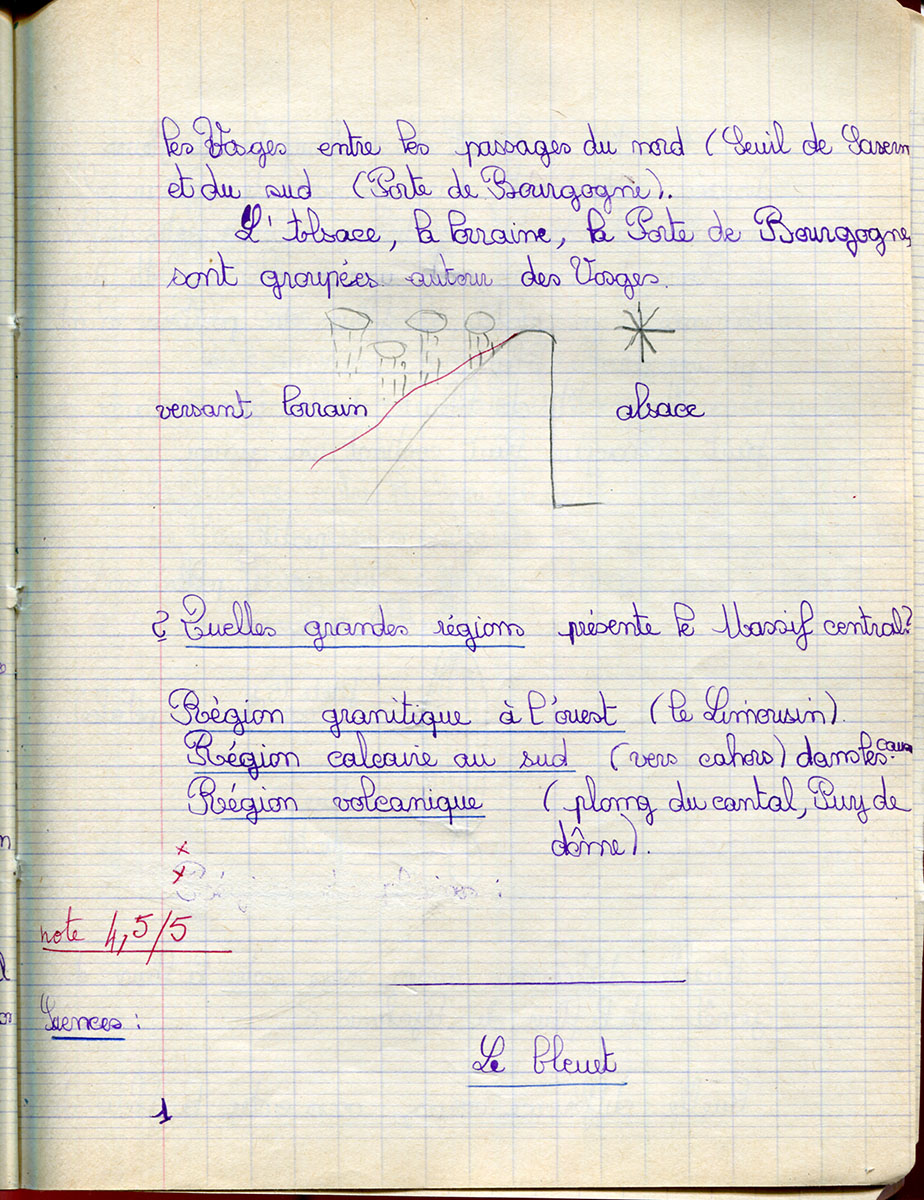 les Vosges entre les passages du nord (Seuil de Savern
et du sud (Porte de Bourgogne).
L'Alsace, la Lorraine, la Porte de Bourgogne,
sont groupées autour des Vosges.
versant lorrain
alsace
2 Quelles grandes régions présente le Massif central?
Région granitique à l'ouest (le Limousin).
Région calcaire au sud (vers cahors) dans les caus
Région volcanique (plomg du cantal, Puy de
dôme).
x
x
note 4,5/5
Sciences :
Le bleuet
1